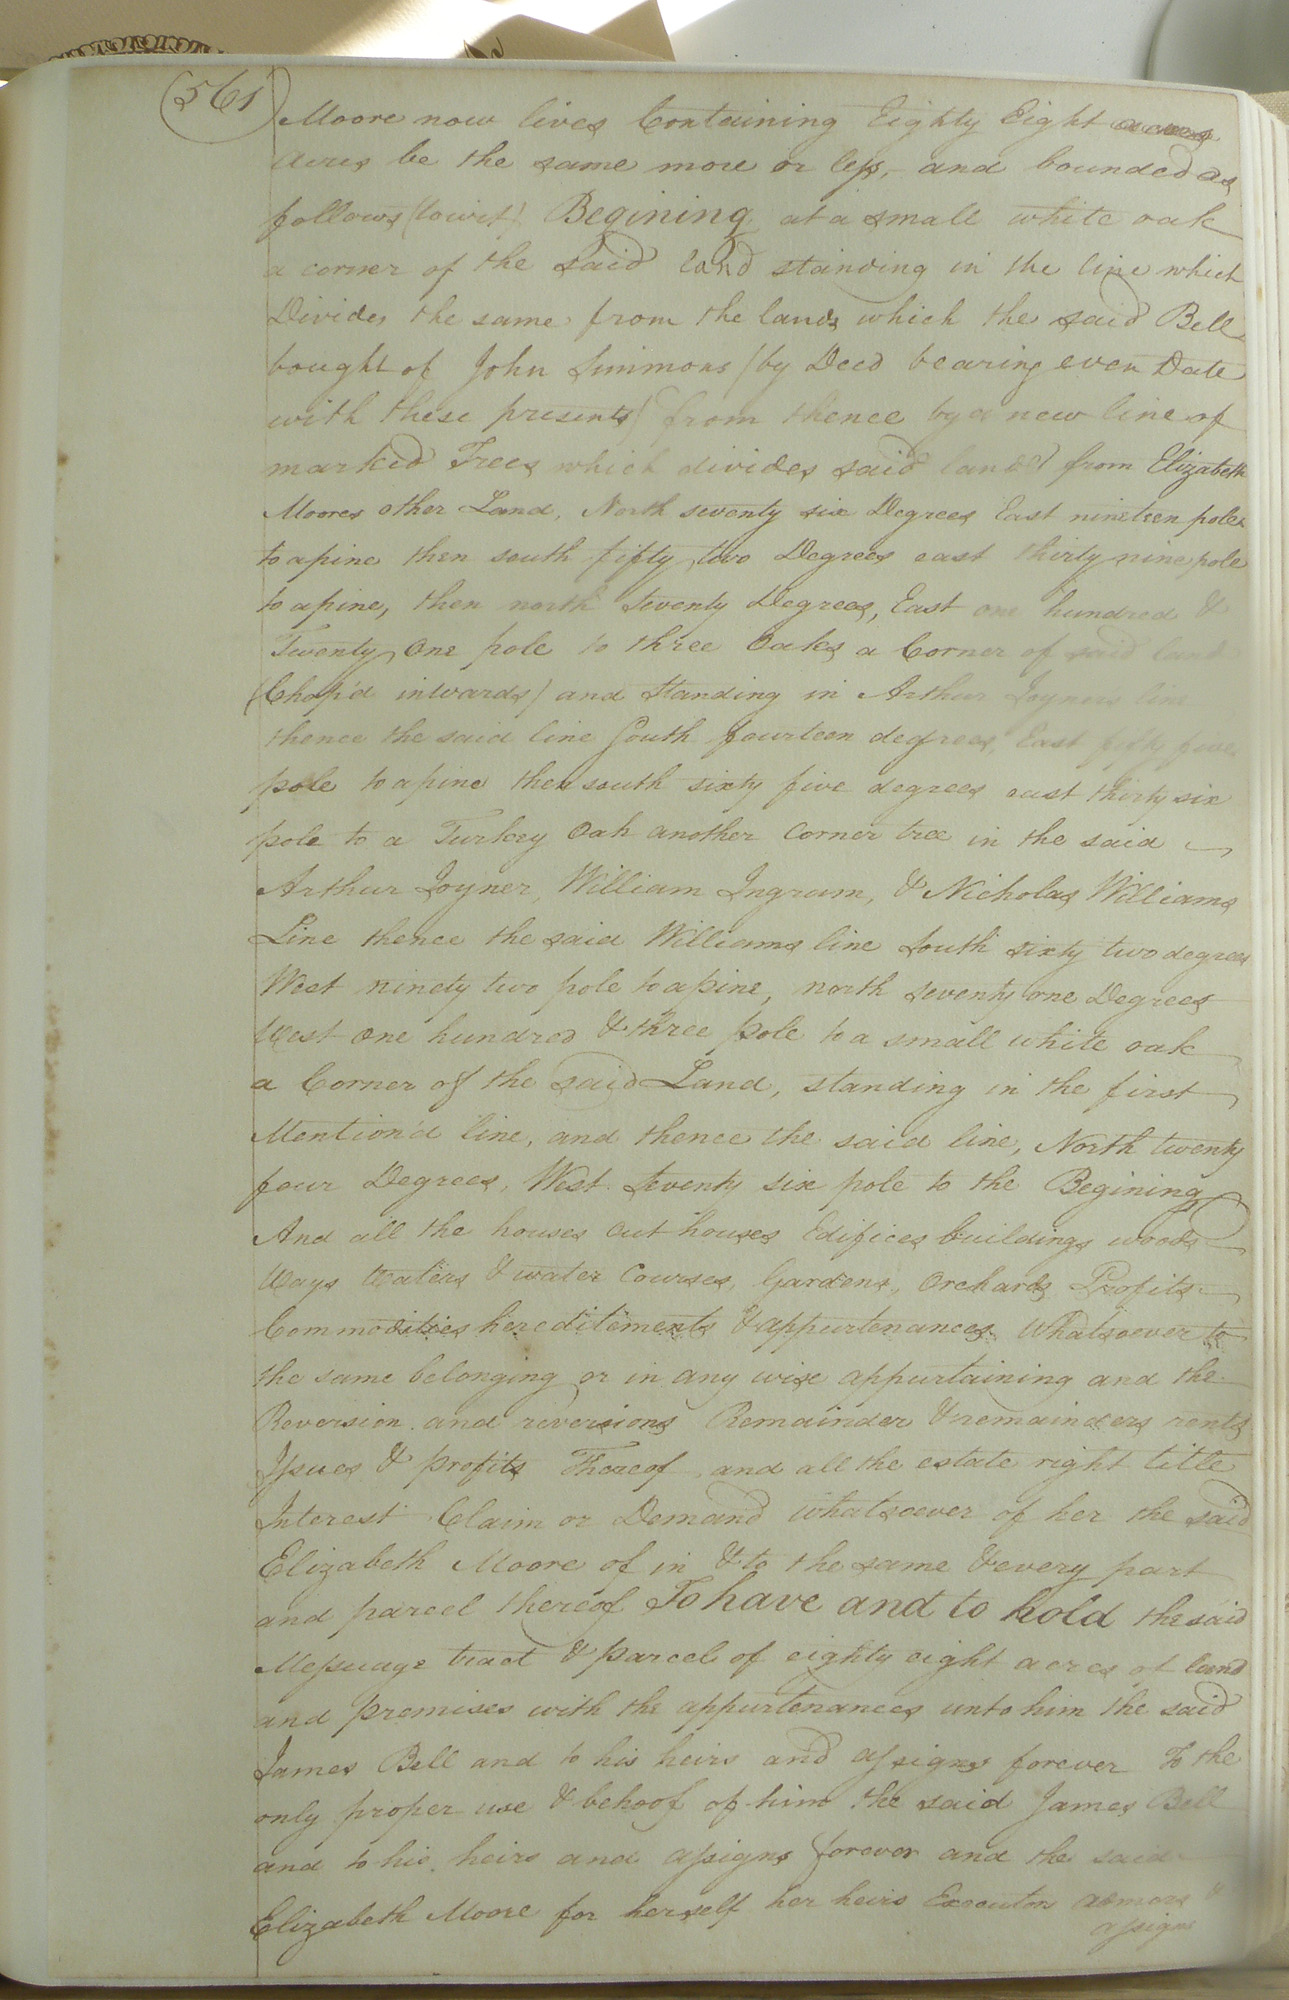 561
Moore now lives Containing Eighty Eight acres
acres be the same more or less, and bounded as
follows (towit) Begining at a small white oak
a corner of the said land standing in the line which
Divides the same from the lands which the said Bell
bought of John Simmons (by Deed bearing even Date
with these presents) from thence by a new line of
marked Trees which divides said land from Elizabeth
Moores other Land, North seventy six Degrees East nineteen poles
to a pine then south fifty two Degrees east thirty nine pole
to a pine, then north Seventy Degrees, East one hundred &
Twenty One pole to three Oaks a Corner of said land
(Chop'd inwards) and Standing in Arthur Joyners line
thence the said line South fourteen degrees, East fifty five
pole to a pine then south sixty five degrees east thirty six
pole to a Turkey Oak another Corner tree in the said
Arthur Joyner, William Ingram, & Nicholas Williams
Line thence the said Williams line South sixty two degrees
West ninety two pole to a pine, north seventy one Degrees
West One hundred & three pole to a small white oak
a Corner of the said Land, standing in the first
Mention'd line, and thence the said line, North twenty
four Degrees, West Seventy six pole to the Begining
And all the houses out houses Edifices buildings woods
Ways Waters & water Courses, Gardens, Orchards Profits
Commodities hereditements & appurtenances Whatsoever to
the same belonging or in any wise appurtaining and the
Reversion and reversions Remainder & remainders rents
Issues & profits Thereof and all the estate right title
Interest Claim or Demand whatsoever of her the said
Elizabeth Moore of in & to the same & every part
and parcel thereof To have and to hold the said
Messuage tract & parcel of eighty eight acres of land
and premises with the appurtenances unto him the said
James Bell and to his heirs and assigns forever To the
only proper use & behoof of him the said James Bell
and to his heirs and assigns forever and the said
Elizabeth Moore for herself her heirs Executors admors &
assigns